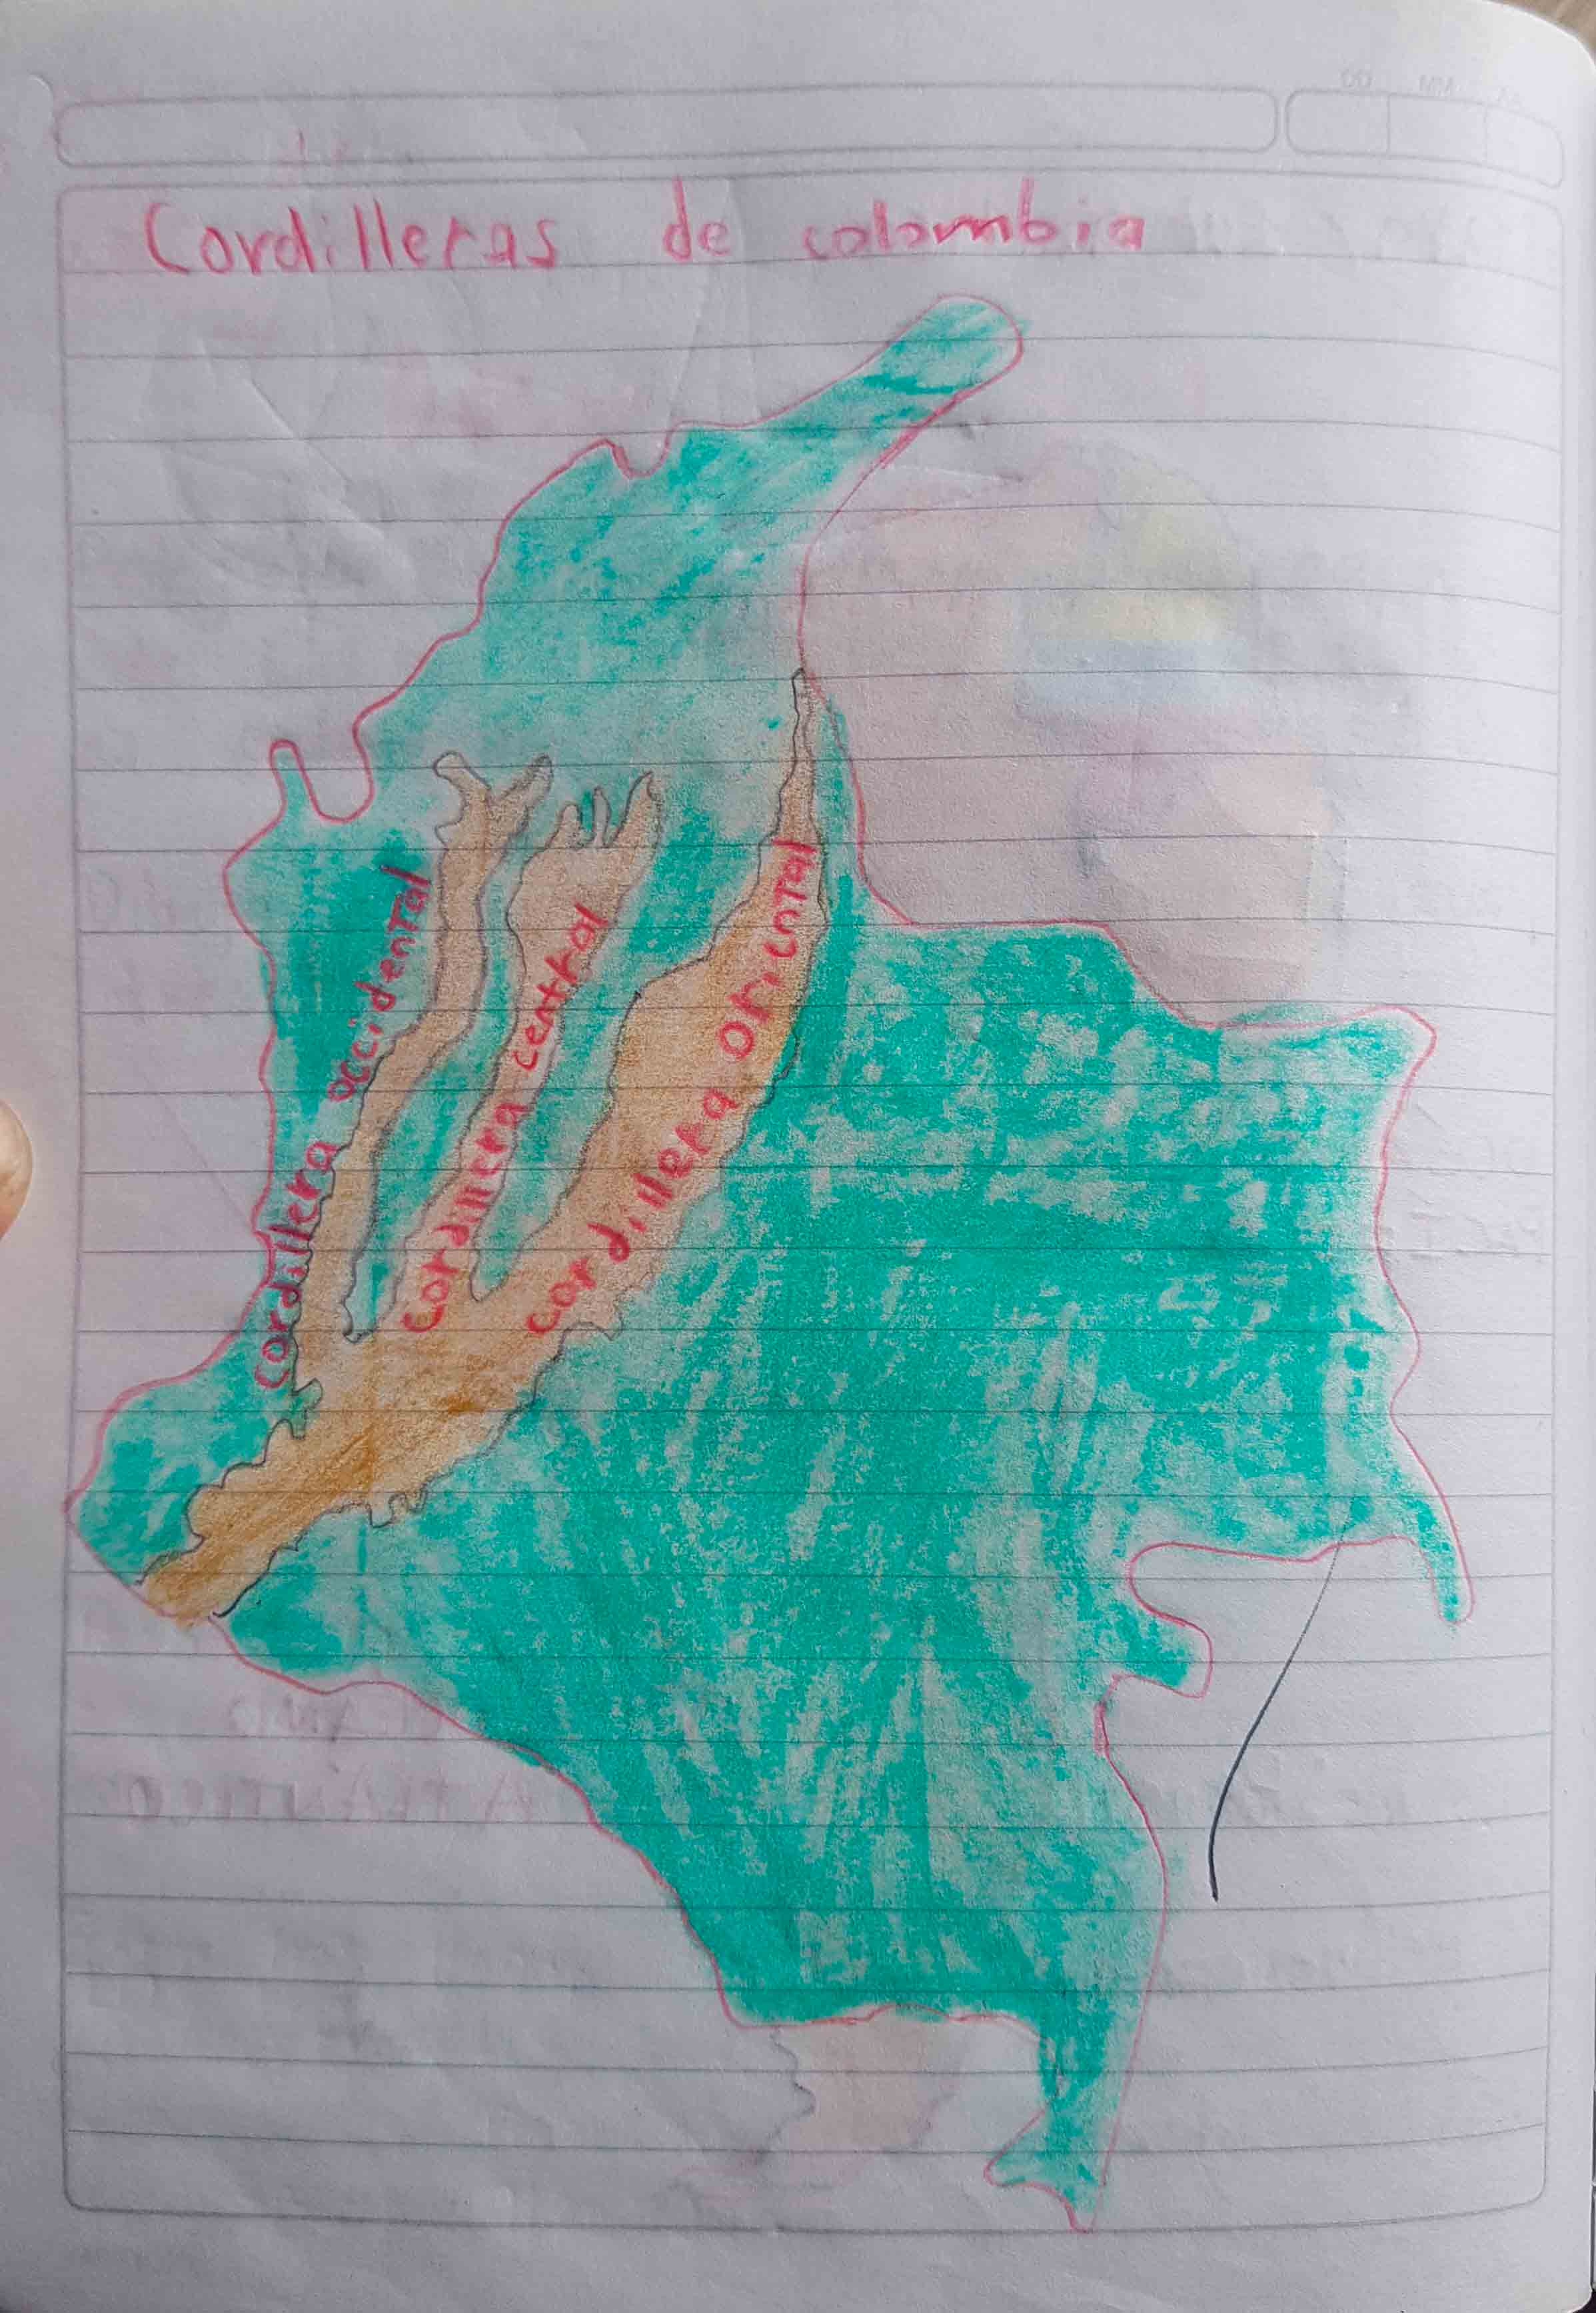 Cordilleras de colombia
cordillera occidental
cordillera central
cordillera oriental